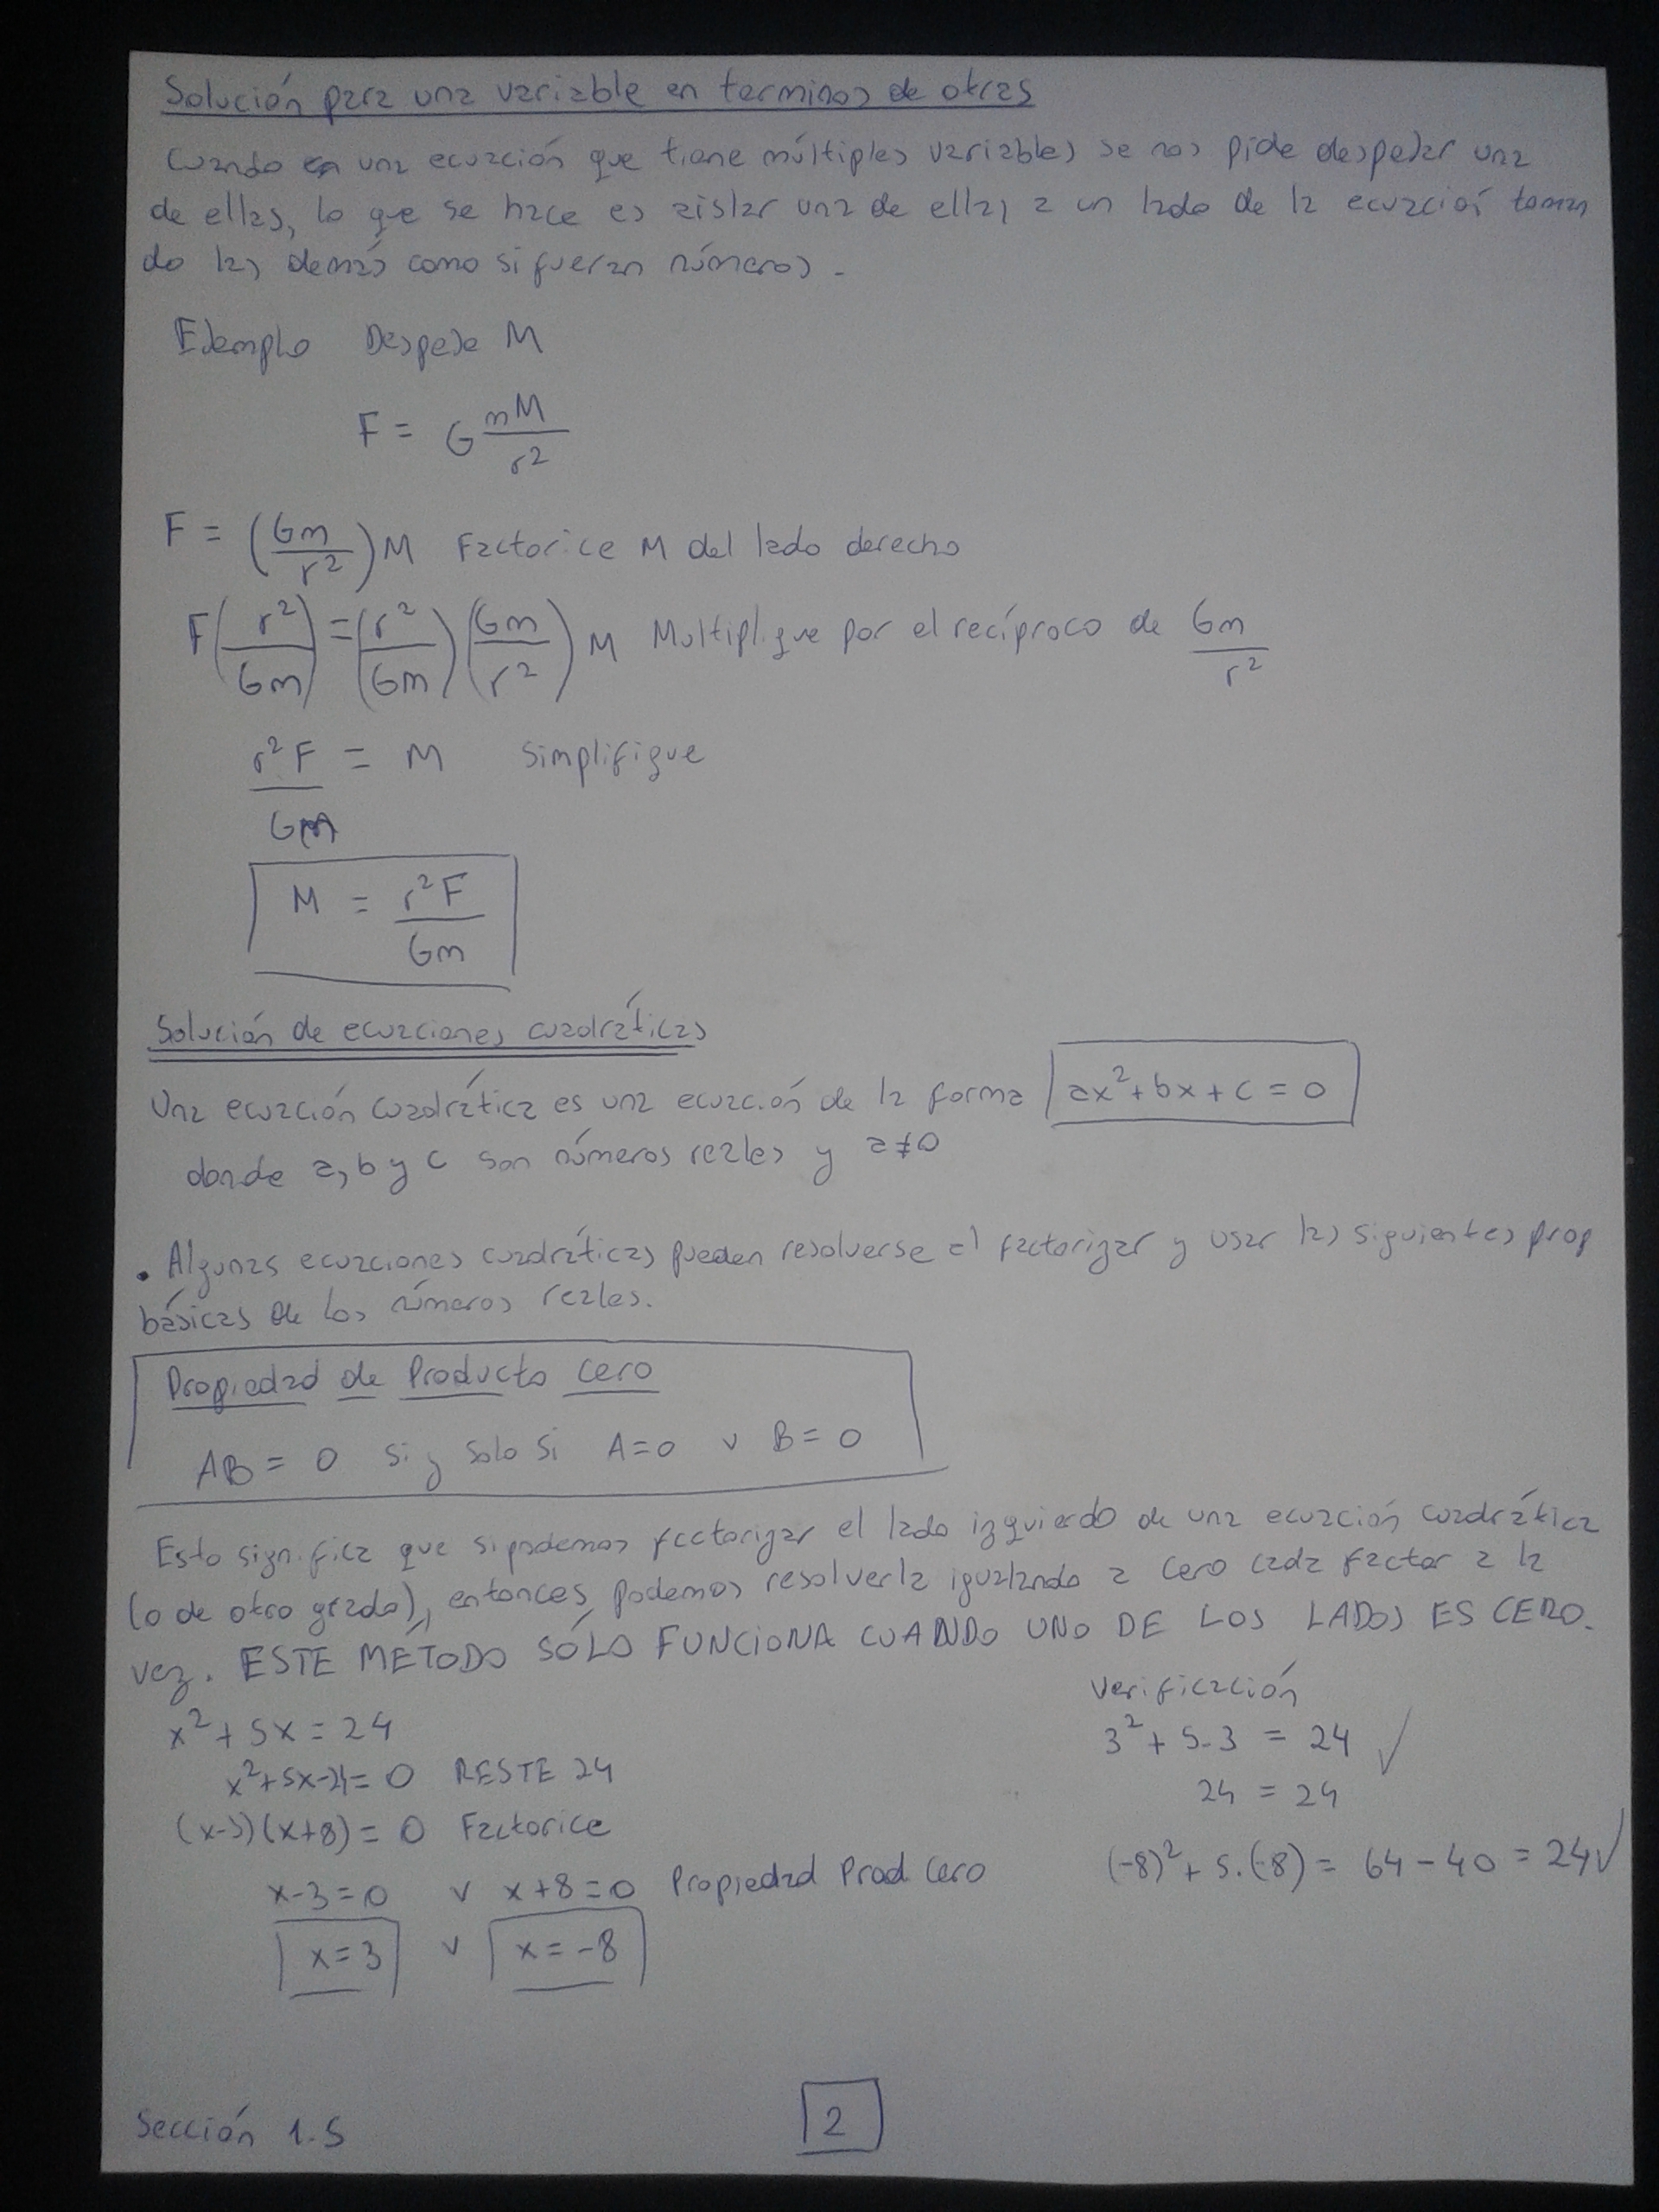 Solución para una variable en terminos de otras
Cuando en una ecuación que tiene múltiples variables se nos pide despejar una
de ellas, lo que se hace es aislar una de ellas a un lado de la ecuación toman
do las demás como si fueran números.
Ejemplo Despeje M
F = G mM/r²
F = (Gm/r²)M Factorice M del lado derecho
F(r²/Gm) = (r²/Gm)(Gm/r²)M Multiplique por el recíproco de Gm/r²
r²F/Gm = M Simplifique
M = r²F/Gm
Solución de ecuaciones cuadráticas
Una ecuación cuadrática es una ecuación de la forma ax²+bx+c=0
donde a, b y c son números reales y a≠0
• Algunas ecuaciones cuadráticas pueden resolverse al factorizar y usar las siguientes prop
básicas de los números reales.
Propiedad de Producto Cero
AB = 0 si y solo si A=0 v B=0
Esto significa que si podemos factorizar el lado izquierdo de una ecuación cuadrática
(o de otro grado), entonces podemos resolverla igualando a cero cada factor a la
vez. ESTE MÉTODO SÓLO FUNCIONA CUANDO UNO DE LOS LADOS ES CERO.
x²+5x=24
x²+5x-24=0 RESTE 24
(x-3)(x+8)=0 Factorice
x-3=0 v x+8=0 Propiedad Prod. Cero
x=3 v x=-8
Verificación
3²+5.3 = 24 ✓
24 = 24
(-8)²+5.(-8) = 64-40 = 24✓
Sección 1.5
2